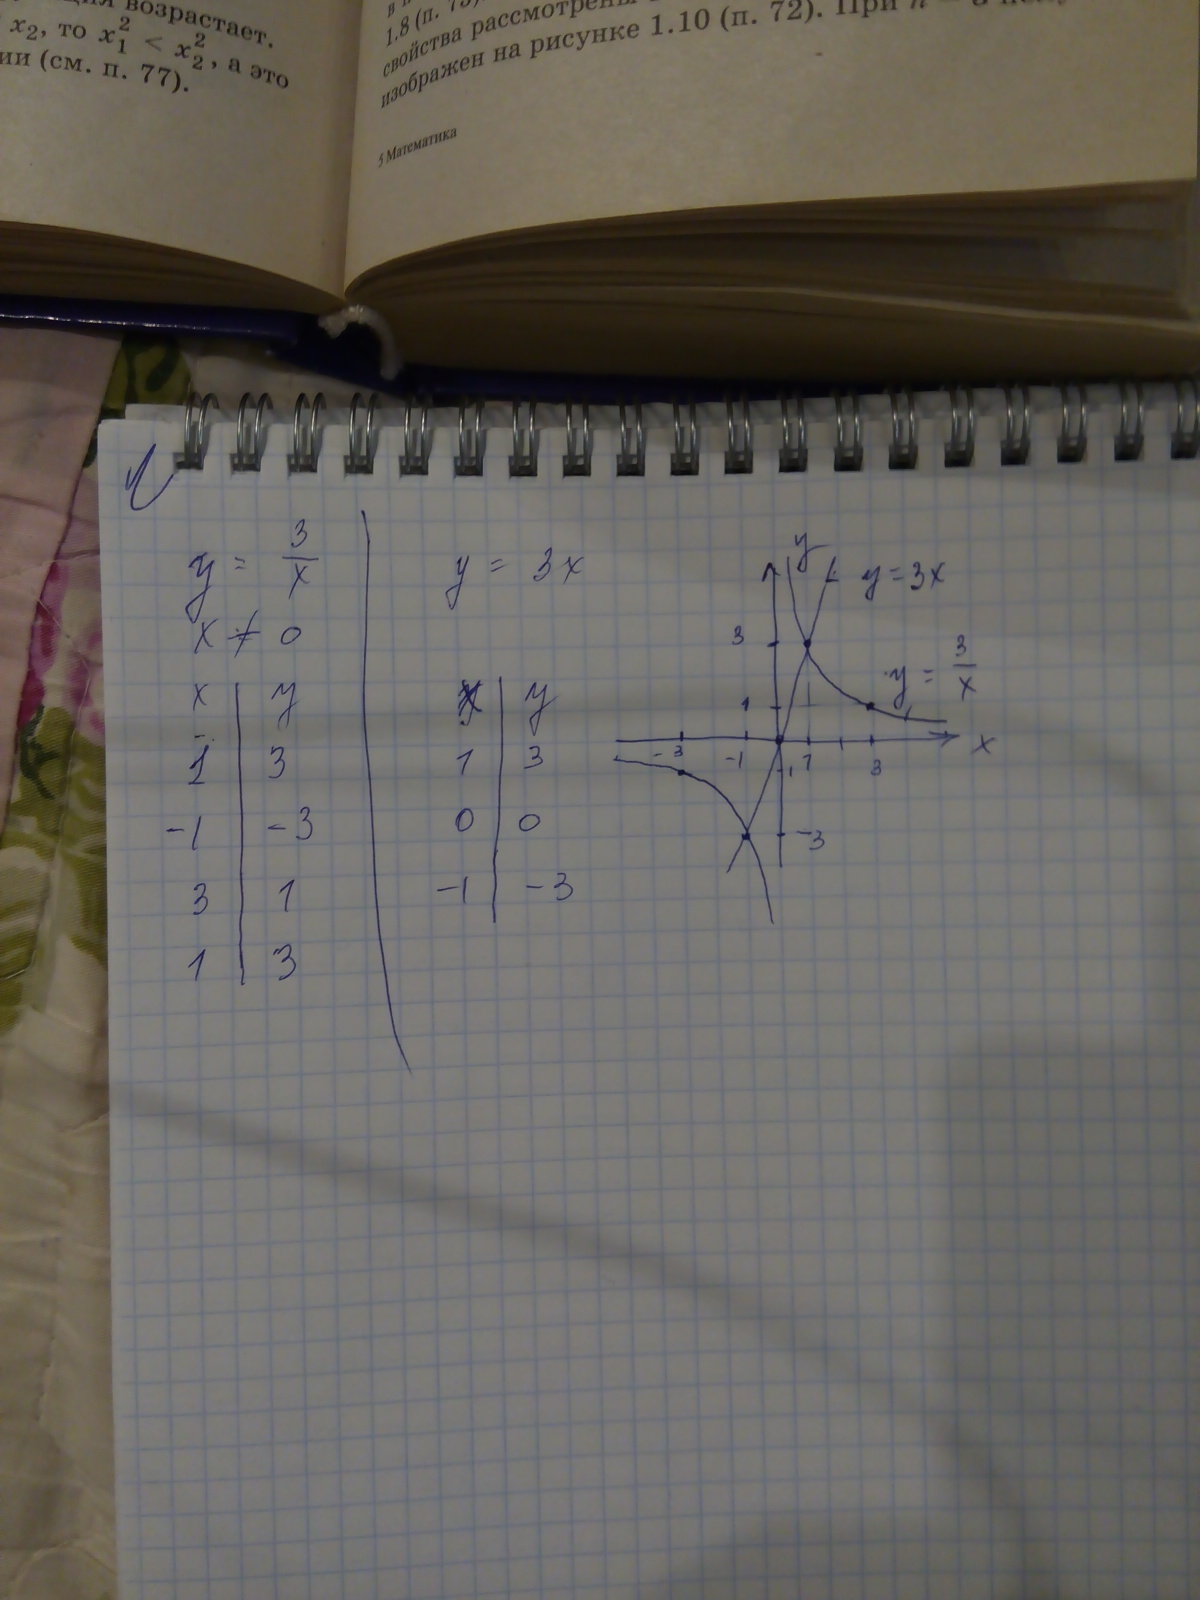 возрастает.
x₂, то x₁² < x₂², а это
ии (см. п. 77).
1.8 (п.
свойства рассмотрены
изображен на рисунке 1.10 (п. 72). При
5 Математика
y = 3/x
x ≠ 0
x | y
1 | 3
-1 | -3
3 | 1
1 | 3
y = 3x
x | y
1 | 3
0 | 0
-1 | -3
y
y = 3x
3
y = 3/x
1
x
-3
-1
1
3
-3